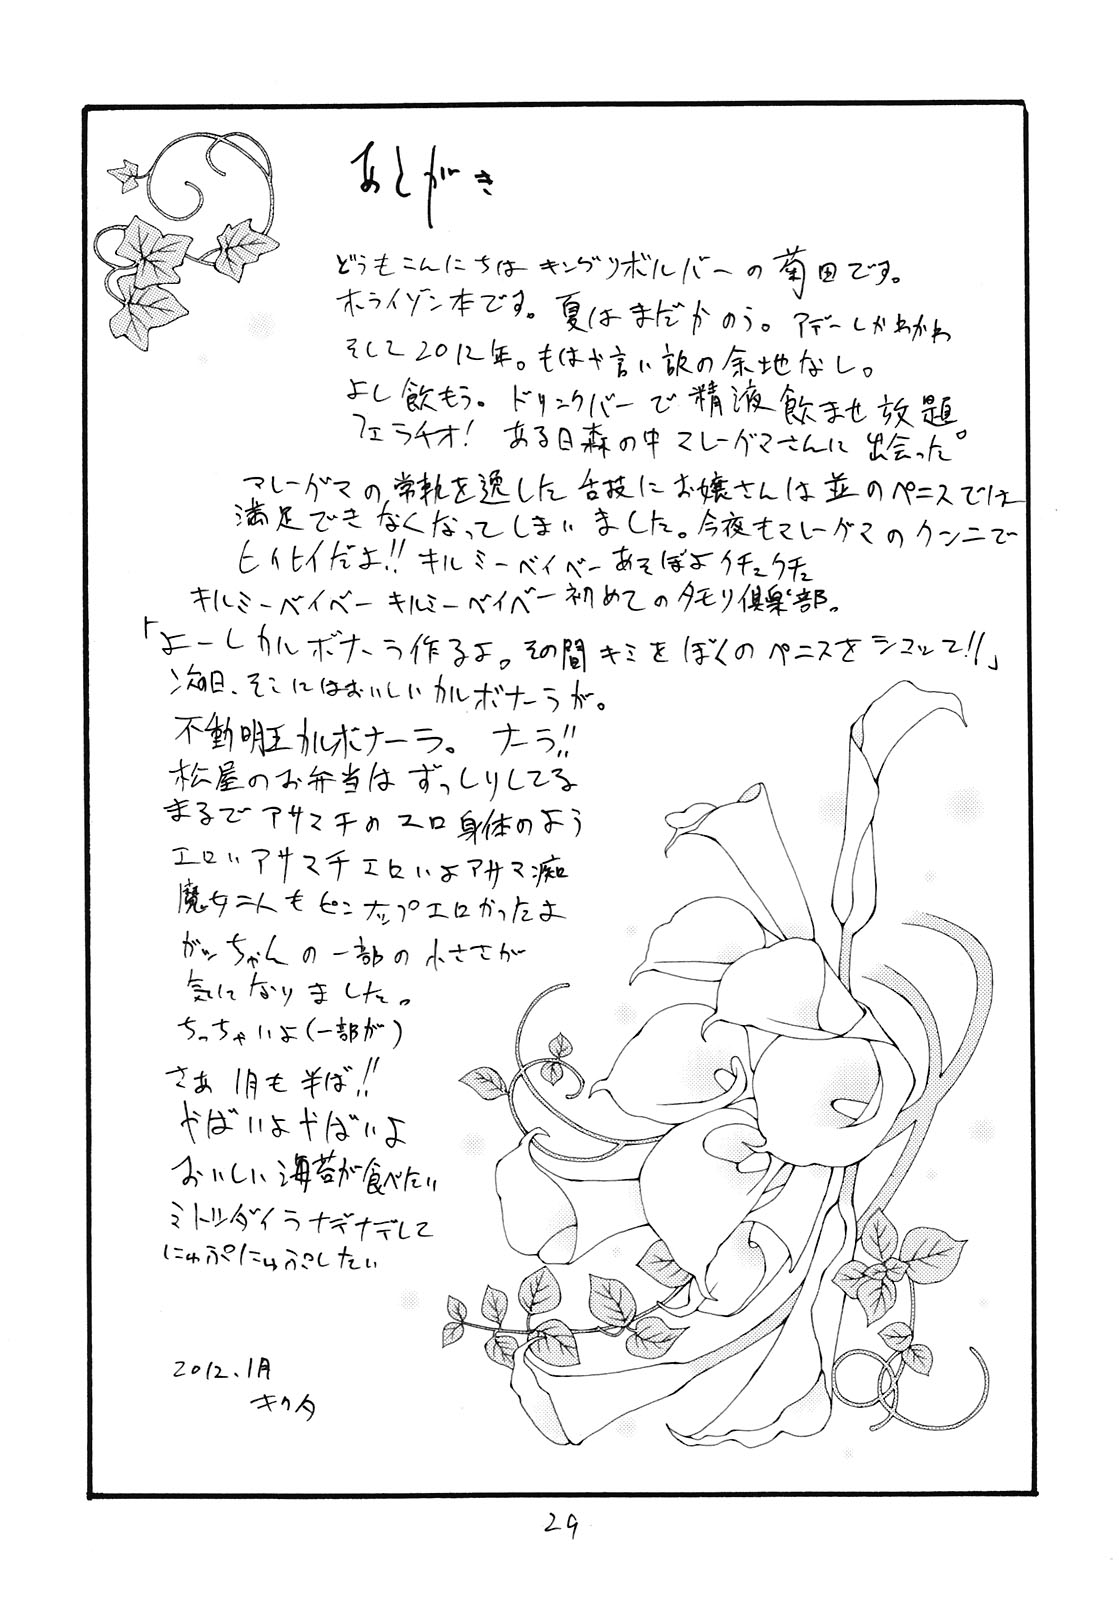 あとがき
どうもこんにちは キングリボルバーの菊田です。
ホライゾン本です。夏はまだかのう。アデーレかわかわ
そして2012年。もはや言い訳の余地なし。
よし飲もう。ドリンクバーで精液飲ませ放題
フェラチオ! ある日森の中マレーグマさんに出会った。
マレーグマの常軌を逸した舌技にお嬢さんは並のペニスでは
満足できなくなってしまいました。今夜もマレーグマのクンニで
ヒイヒイだよ!! キルミーベイベーあそぼよクチュクチュ
キルミーベイベーキルミーベイベー初めてのタモリ倶楽部。
「よーしカルボナーラ作るよ。その間キミをぼくのペニスをシコッて!!」
次の日、そこにはおいしいカルボナーラが。
不動明王カルボナーラ。 ナーラ!!
松屋のお弁当はずっしりしてる
まるでアサマチのエロ身体のよう
エロいアサマチエロいよアサマ痴
魔女二人もピンナップエロかったよ
ガッちゃんの一部の小ささが
気になりました。
ちっちゃいよ(一部が)
さあ 1月も半ば!!
やばいよやばいよ
おいしい海苔が食べたい
ミトツダイラナデナデして
にゅぷにゅぷしたい
2012.1月
キクタ
29